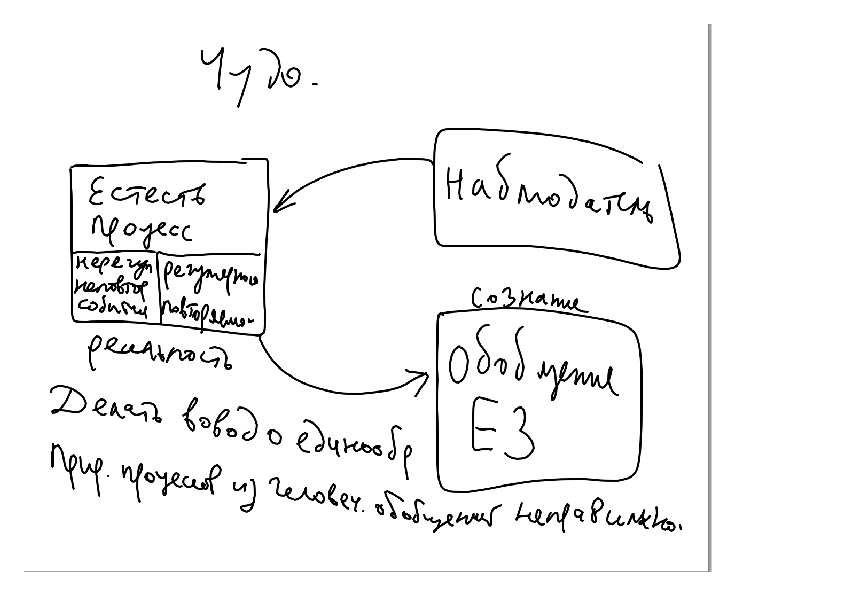 Чудо.
Наблюдатель
Естеств
процесс
нерегул
неповтор
события
регулярно
повторяемо
реальность
сознание
Обобщение
ЕЗ
Делать вовод о единообр
Прир. процессов из человеч. обобщения неправильно.